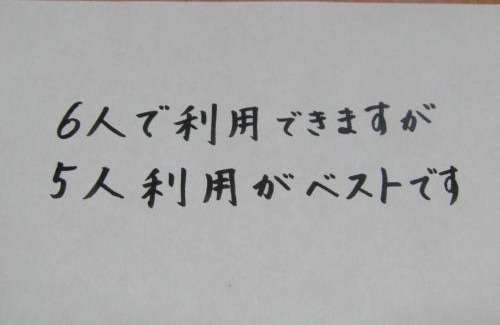 6人で利用できますが
5人利用がベストです